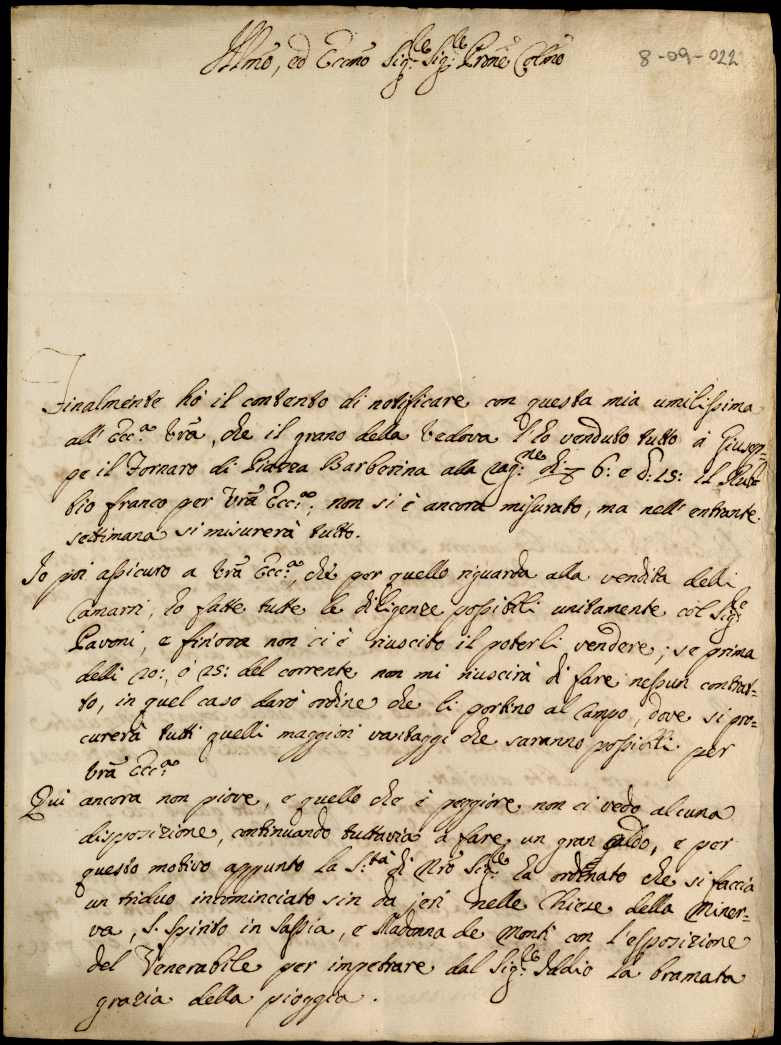 Illmo, ed Eccmo Sig:re Sig:re Prone Colmo
8-09-022
Finalmente hò il contento di notificare con questa mia umilissima
all' Ecc:a Vrâ, che il grano della Vedova l'hò venduto tutto à Giusep=
pe il Fornaro di Piazza Barberina alla rag:ne di 6: e d: 15: il Rub=
bio franco per Vrâ Ecc:a, non si è ancora misurato, ma nell' entrante
settimana si misurerà tutto.
Io poi assicuro a Vrâ Ecc:a, che per quello riguarda alla vendita delli
Camarri, hò fatte tutte le diligenze possibili unitamente col Sig:re
Pavoni, e fin'ora non ci è riuscito il poterli vendere; se prima
delli 20:, ò 25: del corrente non mi riuscirà di fare nessun contrat=
to, in quel caso darò ordine che li portino al Campo, dove si pro=
curerà tutti quelli maggiori vantaggi che saranno possibili per
Vrâ Ecc:a
Qui ancora non piove, e quello che è peggiore non ci vedo alcuna
disposizione, continuando tuttavia à fare un gran caldo, e per
questo motivo appunto la S:tà di Nrõ Sig:re hà ordinato che si faccia
un triduo incominciato sin da jeri nelle Chiese della Miner=
va, S. Spirito in Sassia, e Madonna de Monti con l'esposizione
del Venerabile per impetrare dal Sig:re Iddio la bramata
grazia della pioggia.